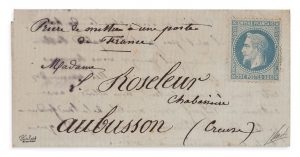 Prière de mettre à une poste
de France
EMPIRE FRANÇAIS
Madame
Roseleur
aubusson (Creuse)